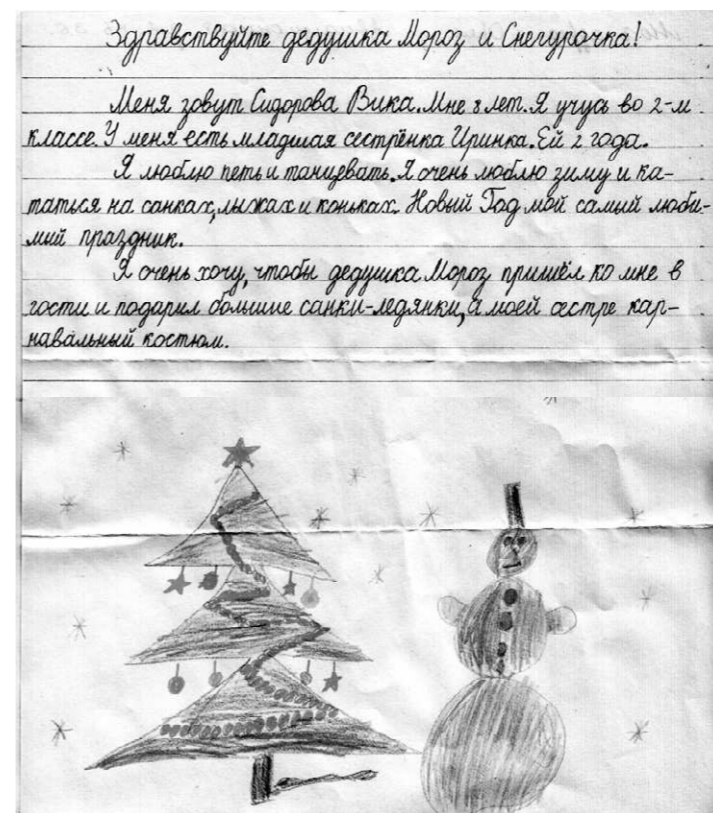 Здравствуйте дедушка Мороз и Снегурочка!
Меня зовут Сидорова Вика. Мне 8 лет. Я учусь во 2-м
классе. У меня есть младшая сестрёнка Иринка. Ей 2 года.
Я люблю петь и танцевать. Я очень люблю зиму и ка-
таться на санках, лыжах и коньках. Новый Год мой самый люби-
мий праздник.
Я очень хочу, чтобы дедушка Мороз пришёл ко мне в
гости и подарил большие санки-ледянки, а моей сестре кар-
навальный костюм.